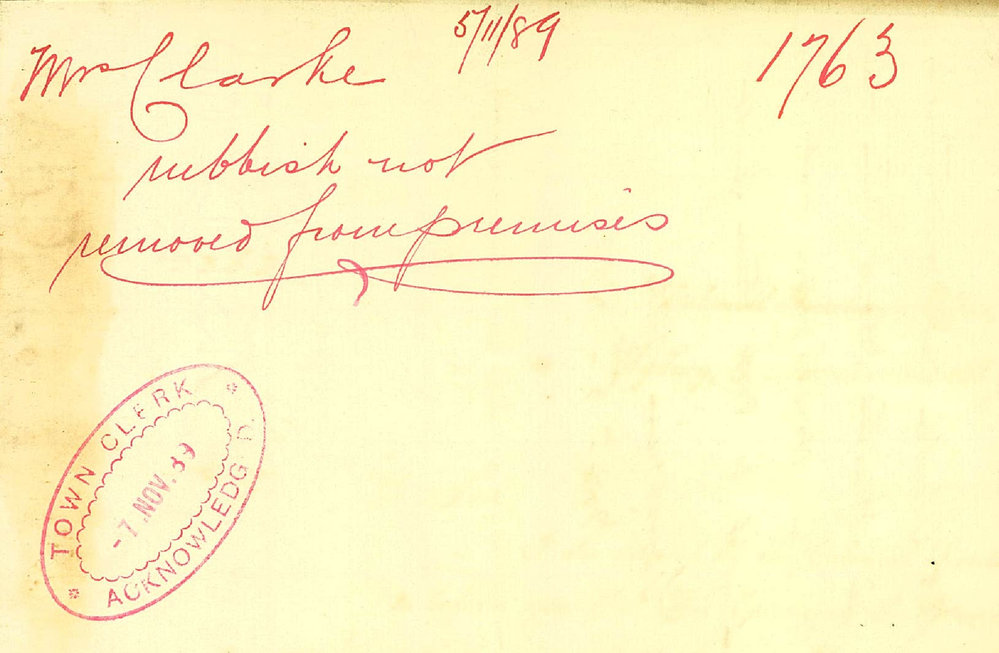 Mrs Clarke 5/11/89 1763
rubbish not
removed from premises
TOWN CLERK
-7.NOV.89
ACKNOWLEDG D.